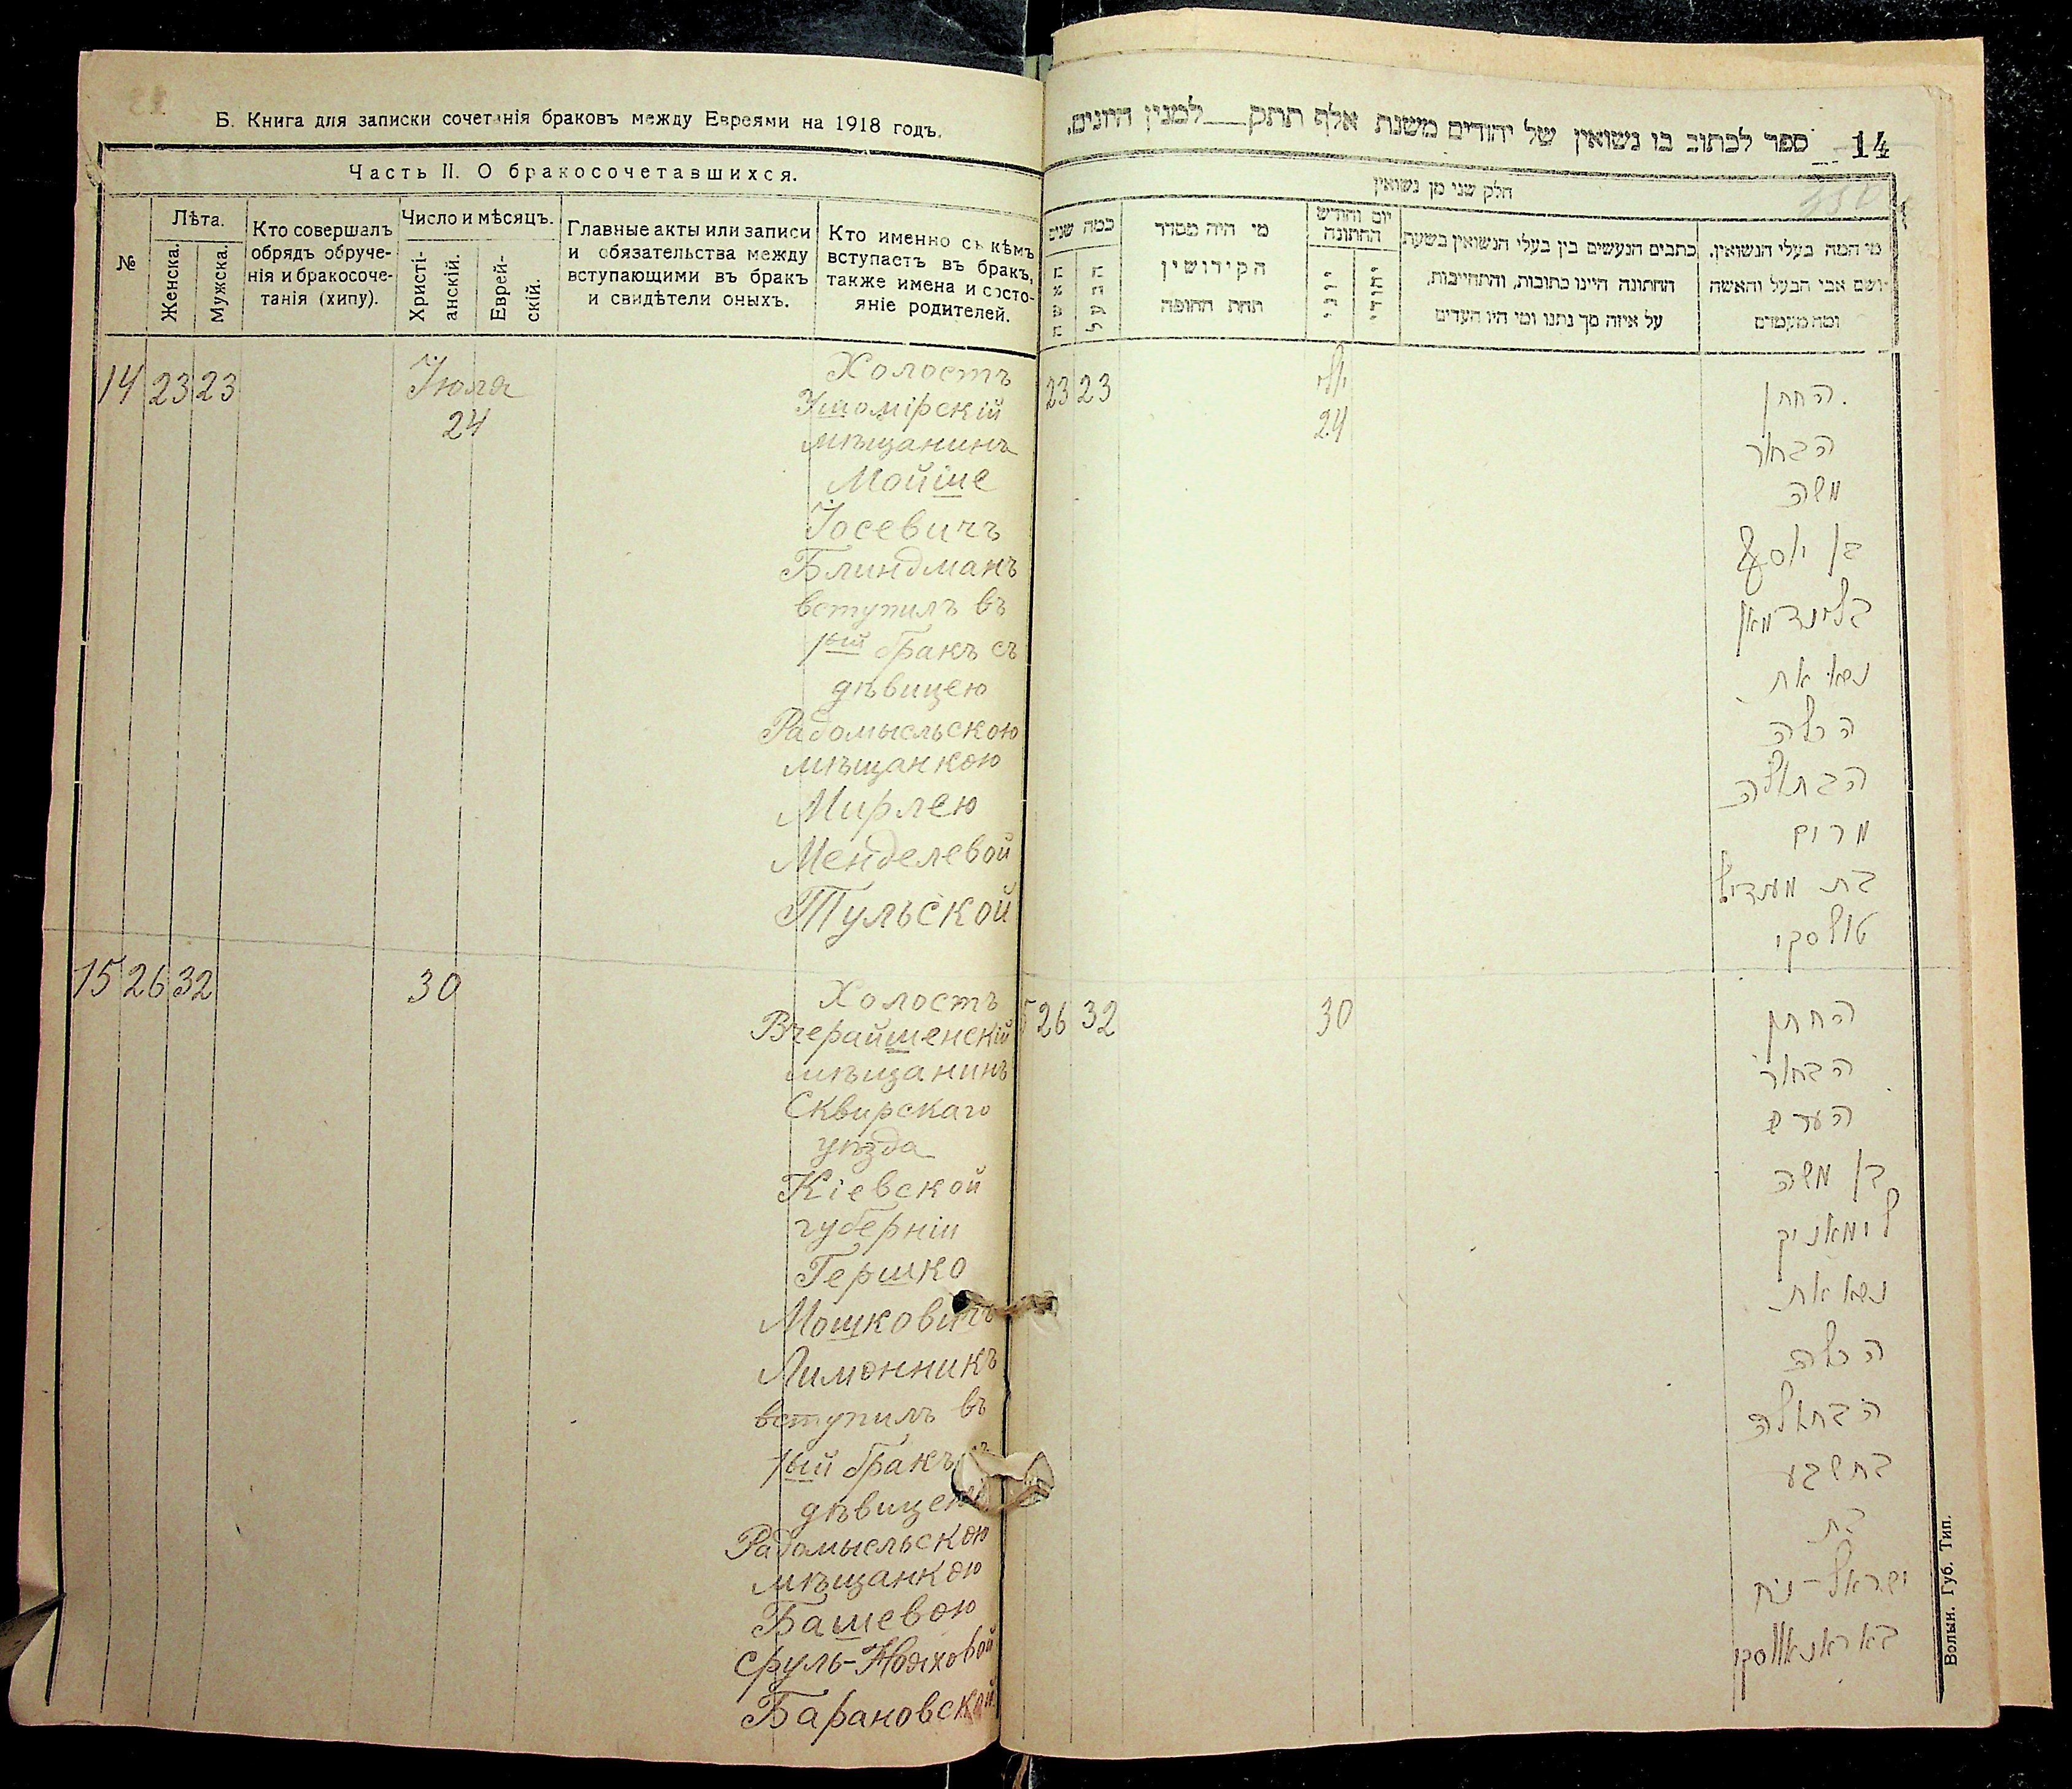 Б. Книга для записки сочетанія браковъ между Евреями на 1918 годъ.
Часть II. О бракосочетавшихся.
№
Лѣта.
Женска.
Мужска.
Кто совершалъ
обрядъ обруче-
нія и бракосоче-
танія (хипу).
Число и мѣсяцъ.
Христі-
анскій.
Еврей-
скій.
Главные акты или записи
и обязательства между
вступающими въ бракъ
и свидѣтели оныхъ.
Кто именно съ кѣмъ
вступаетъ въ бракъ,
также имена и состо-
яніе родителей.
14 23 23 Іюля
24
Холостъ
Житомірскій
мѣщанинъ
Мойше
Іосевичъ
Блиндманъ
вступилъ въ
1ый бракъ съ
дѣвицею
Радомысльскою
мѣщанкою
Мирлею
Менделевой
Тульской
15 26 32 30
Холостъ
Вчерайшенскій
мѣщанинъ
Сквирскаго
уѣзда
Кіевской
губерніи
Гершко
Мошковичъ
Лимонникъ
вступилъ въ
1ый бракъ
дѣвицею
Радомысльскою
мѣщанкою
Башевою
Сруль-Нояховой
Барановской
14
ספר לכתוב בו נשואין של יהודים משנת אלף תתק___למנין היונים.
חלק שני מן נשואין
מי המה בעלי הנשואין,
ושם אבי הבעל והאשה
ומה מעמדם
כתבים הנעשים בין בעלי הנשואין בשעת
החתונה היינו כתובות, והתחייבות,
על איזה סך נתנו ומי היו העדים
יום וחודש
החתונה
יהודי
יוני
מי היה מסדר
הקידושין
תחת החופה
כמה שנים
הבעל
האשה
23 23
יולי
24
החתן
הבחור
משה
בן יוסף
בלינדמאן
נשא את
הכלה
הבתולה
מרים
בת מענדיל
טולסקי
5 26 32 30
החתן
הבחור
הערש
בן משה
לימאניק
נשא את
הכלה
הבתולה
בתשבע
בת
ישראל-נח
באראנאווסקי
Волын. Губ. Тип.